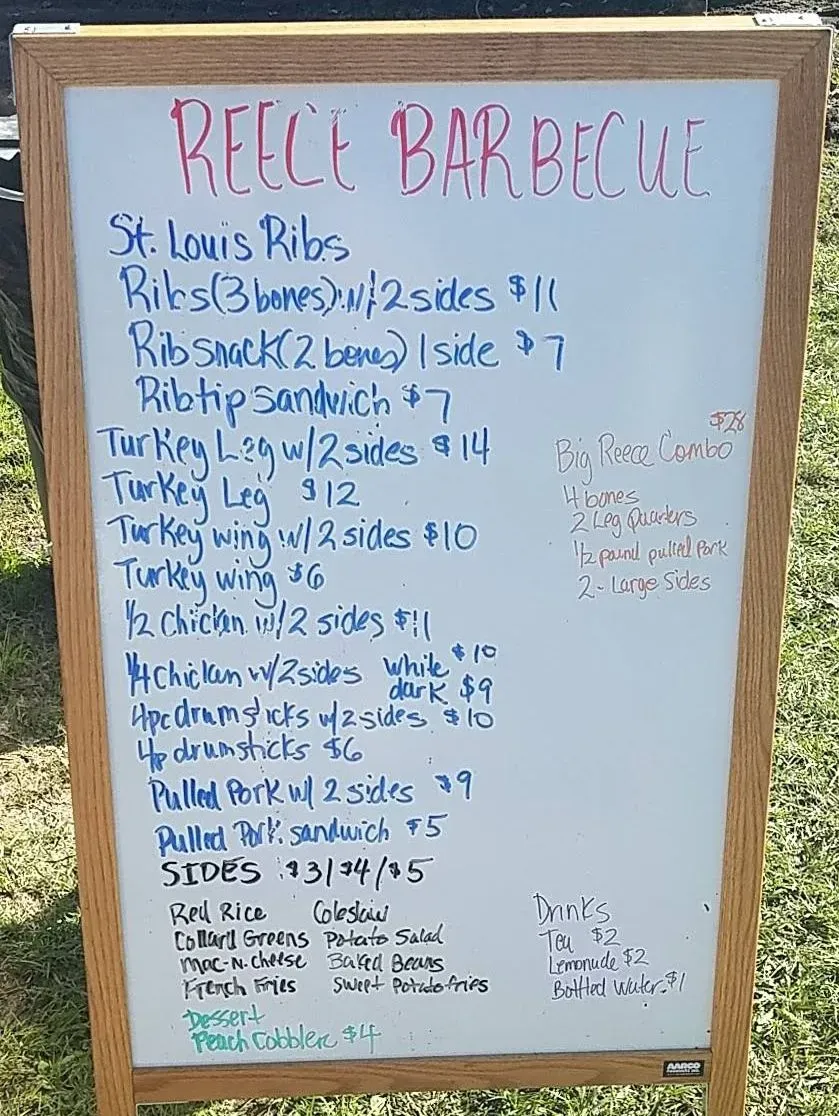 REECE BARBECUE
St. Louis Ribs
Ribs (3 bones) w/ 2 sides $11
Rib snack (2 bones) 1 side $7
Rib tip sandwich $7
Turkey Leg w/ 2 sides $14
Turkey Leg $12
Turkey wing w/ 2 sides $10
Turkey wing $6
1/2 chicken w/ 2 sides $11
1/4 chicken w/ 2 sides white $10
dark $9
4pc drumsticks w/ 2 sides $10
4p drumsticks $6
Pulled Pork w/ 2 sides $9
Pulled Pork sandwich $5
SIDES $3/$4/$5
Red Rice Coleslaw
Collard Greens Potato Salad
Mac-N-Cheese Baked Beans
French Fries Sweet Potato fries
Dessert
Peach Cobbler $4
$28
Big Reece Combo
4 bones
2 Leg Quarters
1/2 pound pulled Pork
2- Large Sides
Drinks
Tea $2
Lemonade $2
Bottled Water $1
AARCO